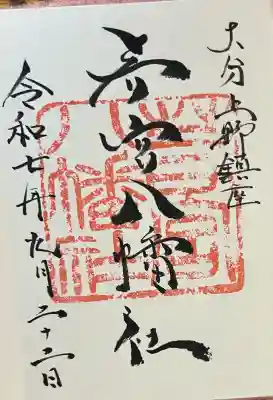 大分上野鎮座
若宮八幡社
令和七年九月二十二日